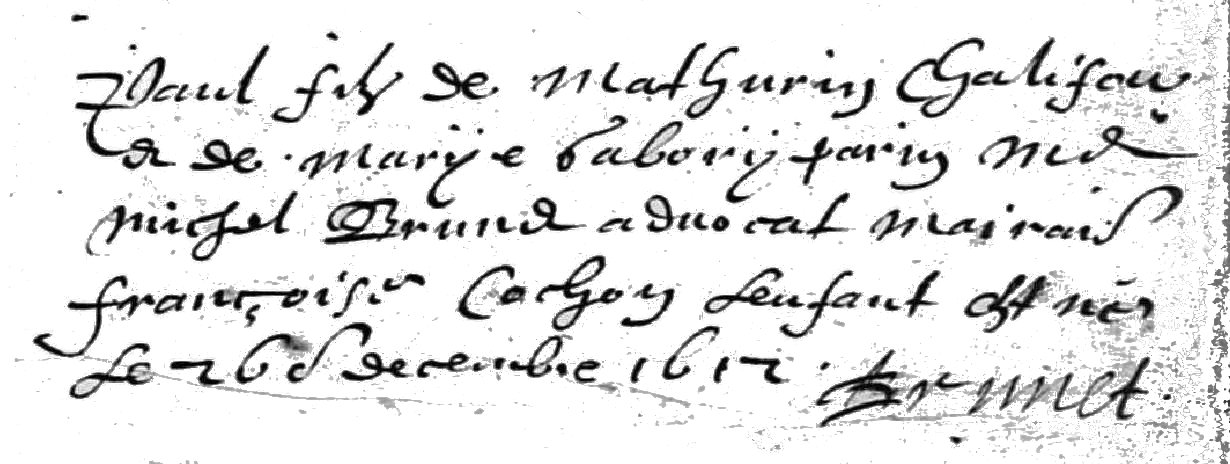 Paul filz de Mathurin Chalifou
et de Marye Sabory parin Me
Michel Brunet advocat Mairaise
françoise Cochon Lenfant est né
Le 26e decembre 1612. Brunet.